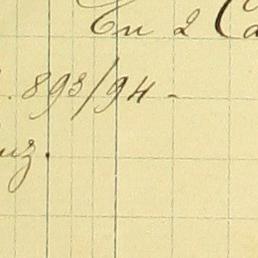 En 2 Ca
893/94 -
uz.